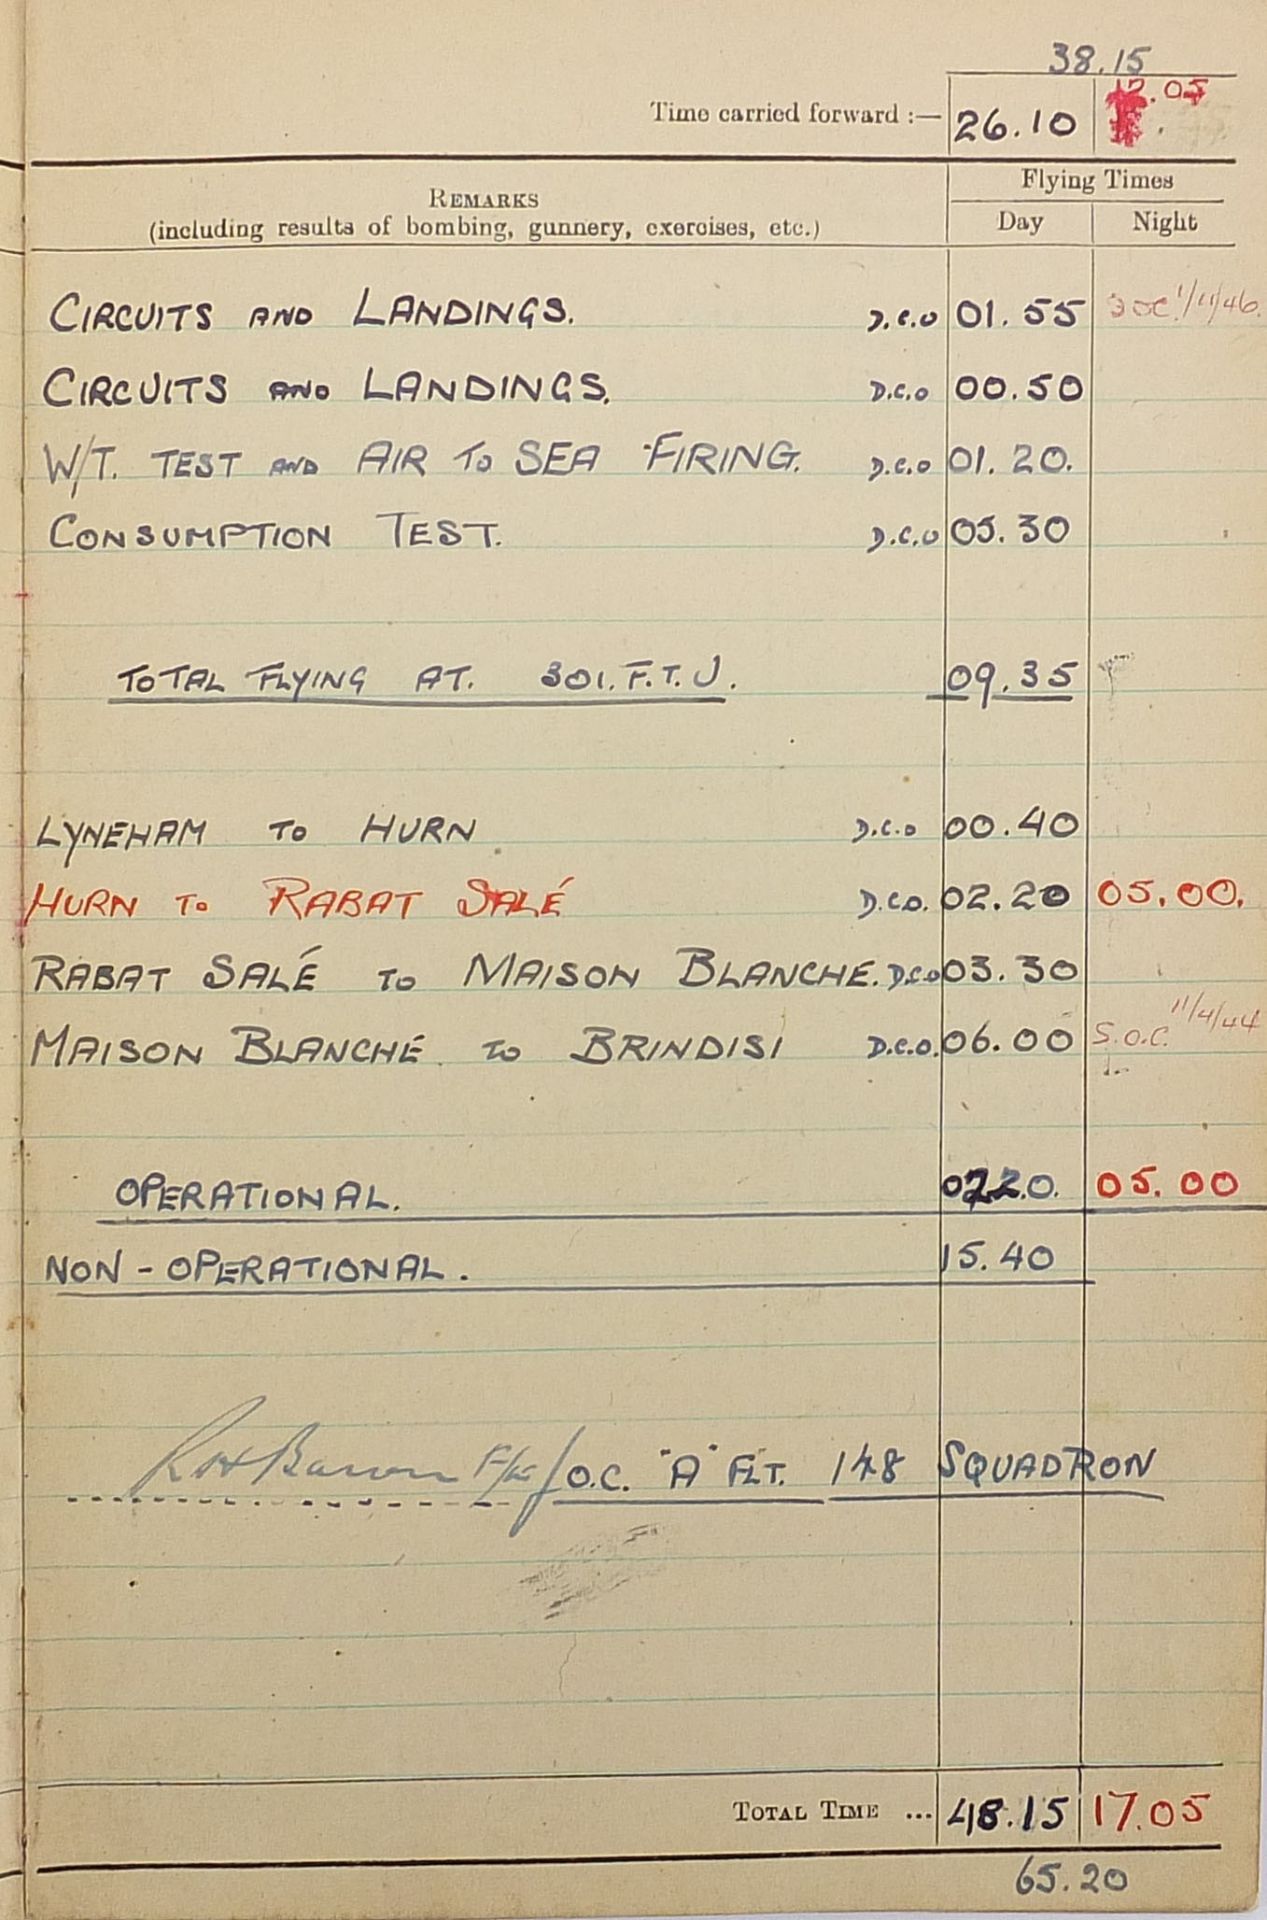 38.15
Time carried forward :— 26.10 12.05
REMARKS
(including results of bombing, gunnery, exercises, etc.)
Flying Times
Day Night
CIRCUITS AND LANDINGS. D.C.O 01.55 1/11/46.
CIRCUITS AND LANDINGS. D.C.O 00.50
W/T. TEST AND AIR TO SEA FIRING. D.C.O 01.20.
CONSUMPTION TEST. D.C.O 05.30
TOTAL FLYING AT. 301. F.T.U. 09.35
LYNEHAM TO HURN D.C.O 00.40
HURN TO RABAT SALÉ D.C.O. 02.20 05.00.
RABAT SALÉ TO MAISON BLANCHE. D.C.O 03.30
MAISON BLANCHE TO BRINDISI D.C.O. 06.00 S.O.C. 11/4/44
OPERATIONAL. 02.20. 05.00
NON - OPERATIONAL. 15.40
F/Lt / O.C. "A" FLT. 148 SQUADRON
TOTAL TIME ... 48.15 17.05
65.20